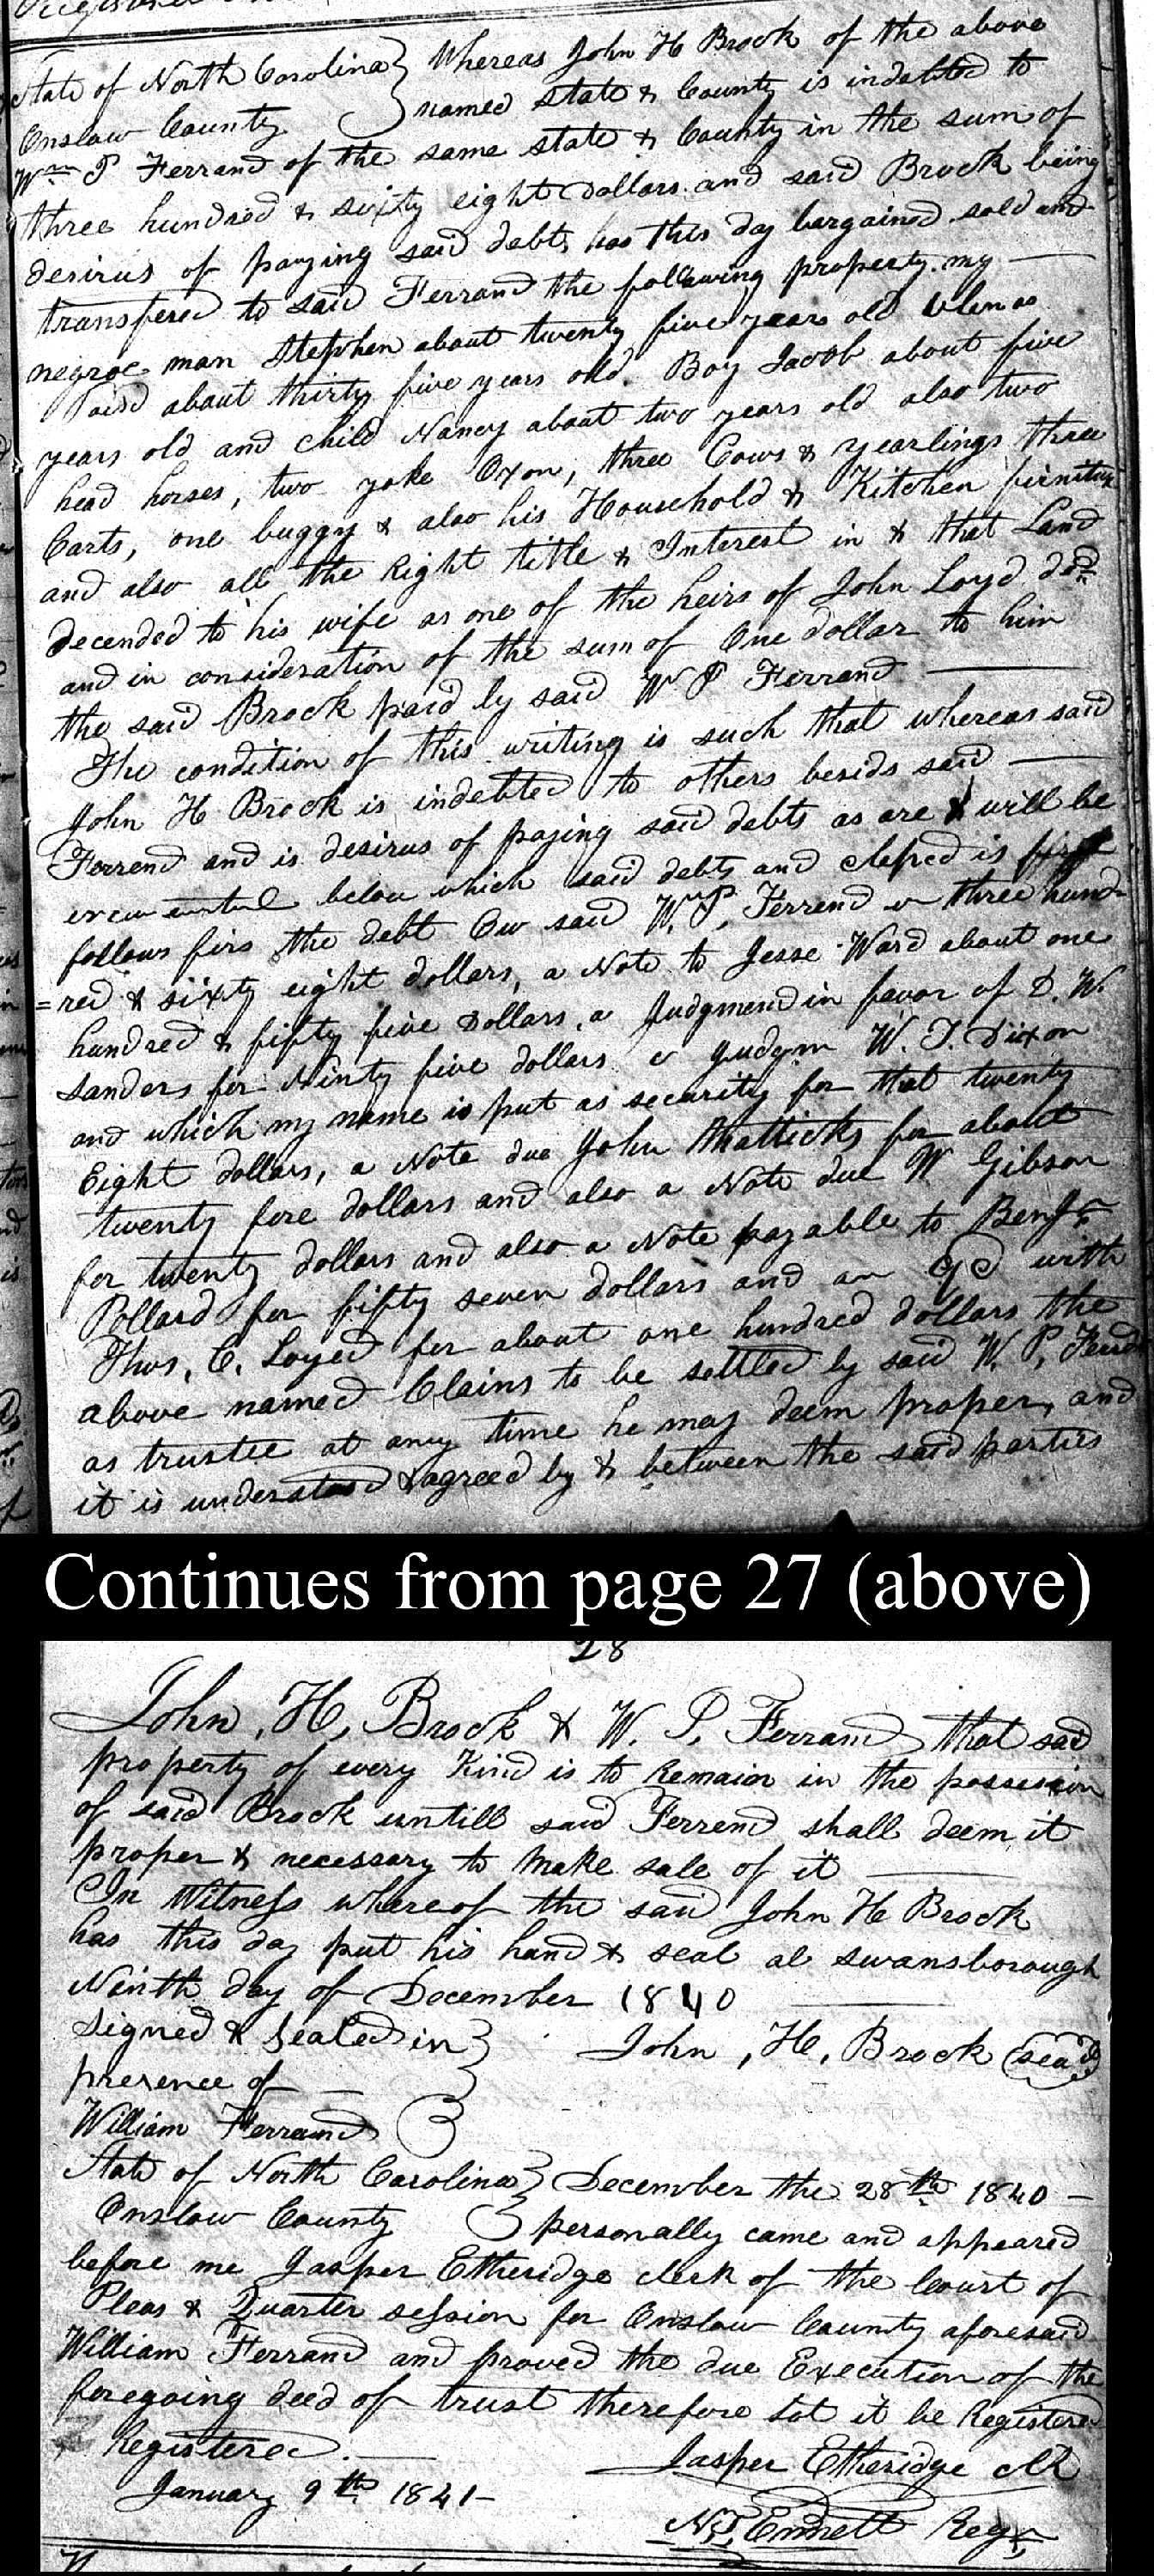 State of North Carolina } Whereas John H Brock of the above
Onslow County } named state & County is indebted to
Wm P Ferrand of the same state & County in the sum of
three hundred & sixty eight dollars and said Brock being
desirus of paying said debts has this day bargained sold and
transfered to said Ferrand the following property. my
negroe man Stephen about twenty five years old
about thirty five years old. Boy Jacob about five
years old and child Nancy about two years old also two
head horses, two yoke Oxon, three Cows & yearlings three
Carts, one buggy & also his Household & Kitchen firniture
and also all the Right title & Interest in & that Land
decended to his wife as one of the heirs of John Loyd decd
and in consideration of the sum of One dollar to him
the said Brock paid by said W P Ferrand
The condition of this writing is such that whereas said
John H Brock is indebted to others besids said
Ferrend and is desirus of paying said debts as are & will be
below which said debts and is
follows firs the debt Ow said W. P. Ferrend three hund-
=red & sixty eight dollars, a Note to Jesse Ward about one
hundred & fifty five Dollars, a Judgmend in favor of D. W.
Sanders for Ninty five dollars a Judgm W. T. Dixon
and which my name is put as security for that twenty
Eight dollars, a Note due John Matticks for about
twenty fore dollars and also a Note due W Gibson
for twenty dollars and also a Note payable to Benj
Pollard for fifty seven dollars and an with
Thos. C. Loyed for about one hundred dollars the
above named Claims to be settled by said W. P. Ferrd
as trustee at any time he may deem proper, and
it is understood & agreed by & between the said parties
Continues from page 27 (above)
28
John, H, Brock & W. P. Ferrand that said
property of every Kind is to Remain in the possession
of said Brock untill said Ferrend shall deem it
proper & necessary to Make sale of it
In Witness whereof the said John H Brock
has this day put his hand & seal at Swansborough
Ninth day of December 1840
Signed & Sealed in } John, H, Brock (seal)
presence of
William Ferrand }
State of North Carolina } December the 28th 1840 -
Onslow County } personally came and appeared
before me Jasper Etheridge clerk of the Court of
Pleas & Quarter session for Onslow County aforesaid
William Ferrand and proved the due Execution of the
foregoing deed of trust therefore Let it be Registered
Registered. Jasper Etheridge clk
January 9th 1841-
N. T. Ennett Regr